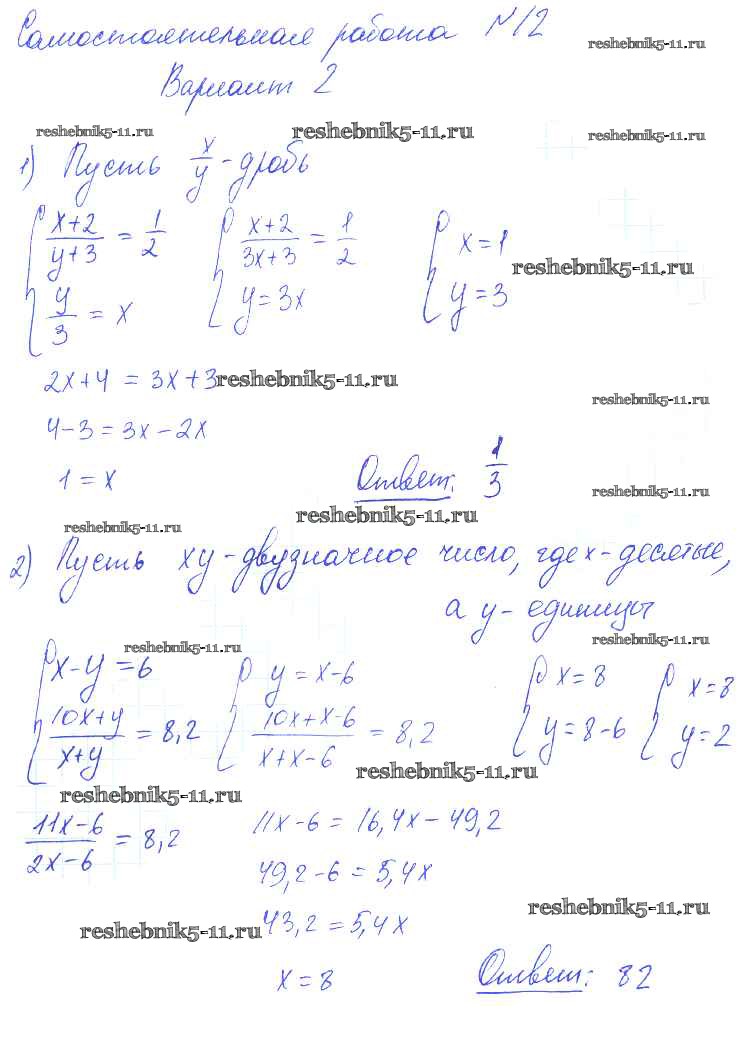 Самостоятельная работа №12
reshebnik5-11.ru
Вариант 2
reshebnik5-11.ru reshebnik5-11.ru reshebnik5-11.ru
1) Пусть x/y - дробь
{ (x+2)/(y+3) = 1/2 { (x+2)/(3x+3) = 1/2 { x=1
y/3 = x y=3x y=3
reshebnik5-11.ru
2x+4 = 3x+3 reshebnik5-11.ru
reshebnik5-11.ru
4-3=3x-2x
1=x Ответ: 1/3
reshebnik5-11.ru
reshebnik5-11.ru reshebnik5-11.ru
2) Пусть xy-двузначное число, где x-десятые,
а y-единицы
reshebnik5-11.ru reshebnik5-11.ru
{ x-y=6 { y=x-6 { x=8 { x=8
(10x+y)/(x+y) = 8,2 (10x+x-6)/(x+x-6) = 8,2 y=8-6 y=2
reshebnik5-11.ru
reshebnik5-11.ru
(11x-6)/(2x-6) = 8,2 11x-6=16,4x-49,2
49,2-6=5,4x
reshebnik5-11.ru 43,2=5,4x reshebnik5-11.ru
x=8 Ответ: 82